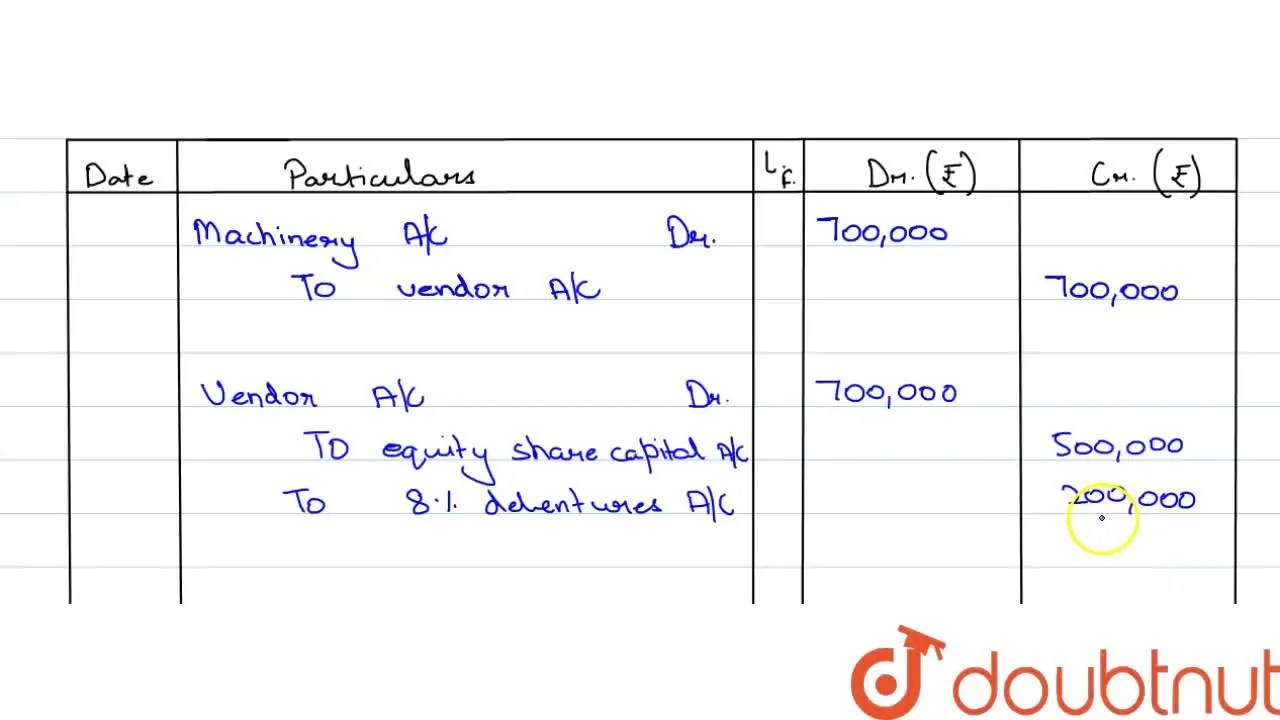 Date Particulars L.F. Dr. (₹) Cr. (₹)
Machinery A/C Dr. 700,000
To vendor A/C 700,000
Vendor A/C Dr. 700,000
To equity share capital A/C 500,000
To 8% debentures A/C 200,000
doubtnut